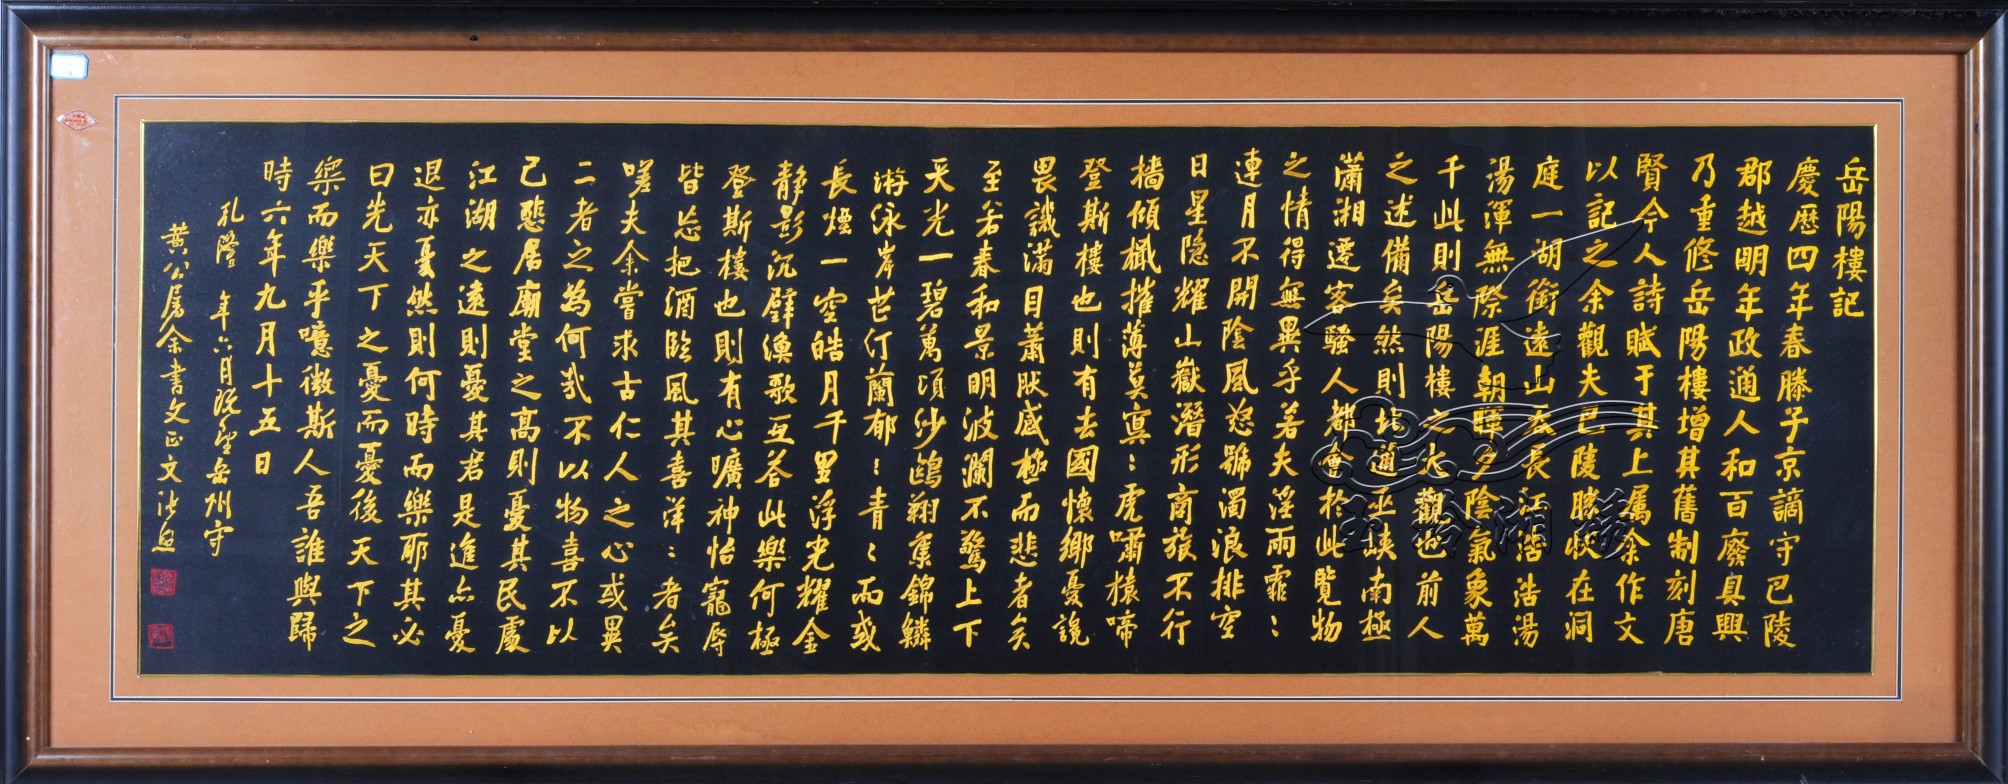 岳陽樓記
慶歷四年春滕子京謫守巴陵
郡越明年政通人和百廢具興
乃重修岳陽樓增其舊制刻唐
賢今人詩賦于其上属余作文
以記之余觀夫巴陵勝狀在洞
庭一湖銜遠山吞長江浩浩湯
湯渾無際涯朝暉夕陰氣象萬
千此則岳陽樓之大觀也前人
之述備矣然則北通巫峽南極
瀟湘遷客騷人都會於此覽物
之情得無異乎若夫淫雨霏〻
連月不開陰風怒號濁浪排空
日星隐耀山嶽潛形商旅不行
檣傾檝摧薄莫冥〻虎嘯猿啼
登斯樓也則有去國懷鄉憂讒
畏譏滿目蕭然感極而悲者矣
至若春和景明波瀾不驚上下
天光一碧萬頃沙鷗翔集錦鱗
游泳岸芷汀蘭郁〻青〻而或
長煙一空皓月千里浮光耀金
静影沉璧漁歌互答此樂何極
登斯樓也則有心曠神怡寵辱
皆忘把酒臨風其喜洋〻者矣
嗟夫余嘗求古仁人之心或異
二者之為何哉不以物喜不以
己悲居廟堂之高則憂其民處
江湖之遠則憂其君是進亦憂
退亦憂然則何時而樂耶其必
曰先天下之憂而憂後天下之
樂而樂乎噫微斯人吾誰與歸
時六年九月十五日
乾隆 年六月 岳州守
黄公属余書文正文
五玲湘繡